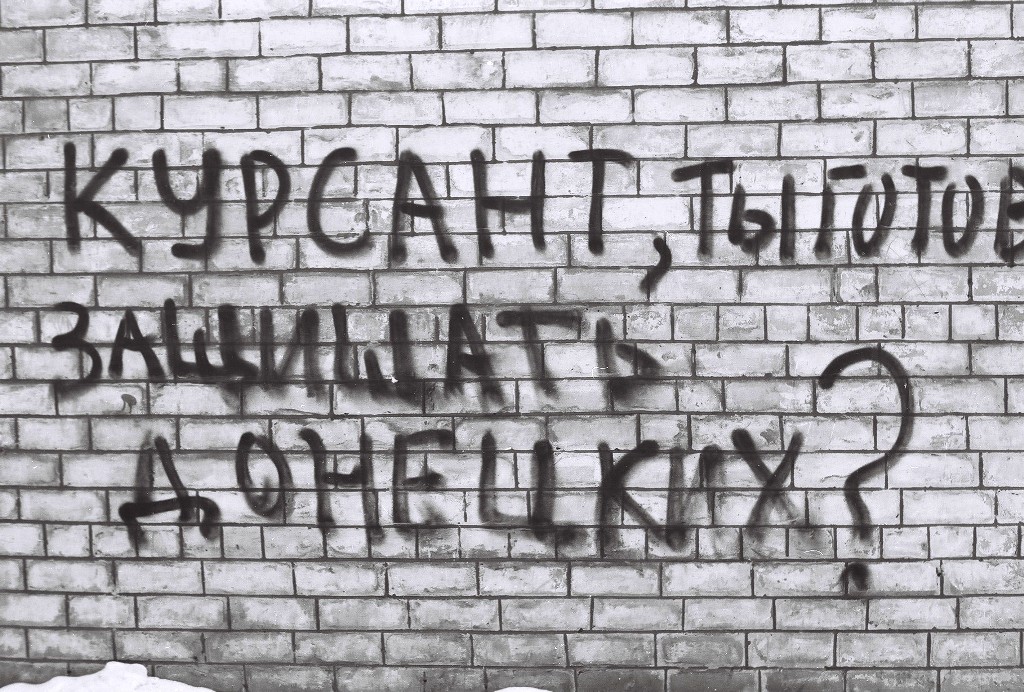 КУРСАНТ, ТЫ ГОТОВ
ЗАЩИЩАТЬ
ДОНЕЦКИХ?